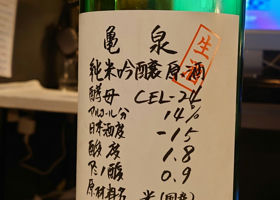 亀泉
生酒
純米吟醸原酒
酵母 CEL-24
アルコール分 14%
日本酒度 -15
酸度 1.8
アミノ酸 0.9
原材料名 米(国産)